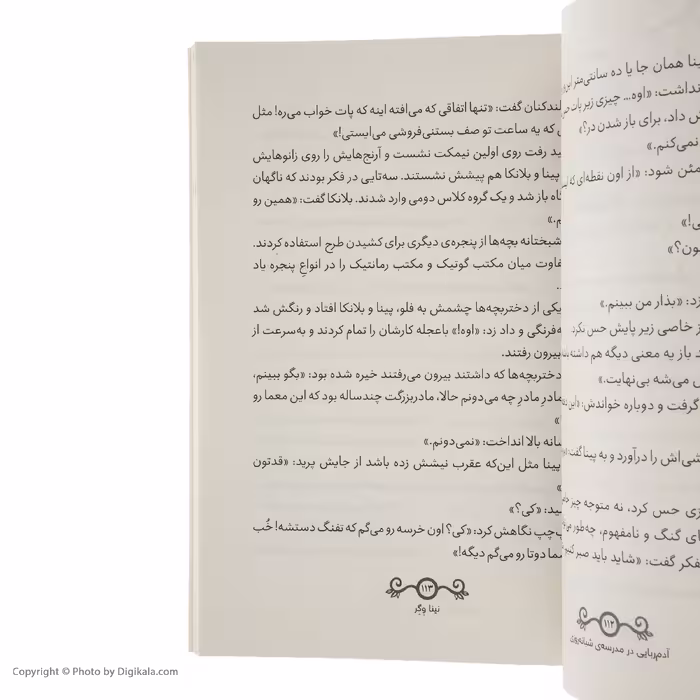 ینا همان جا یا ده سانتی‌متر
نداشت: «اوه... چیزی زیر پات
ش داد، برای باز شدن در؟»
نمی‌کنم.»
مئن شود: «از اون نقطه‌ای که
ی!»
ون؟»
زد: «بذار من ببینم.»
ز خاصی زیر پایش حس نکرد
د باز یه معنی دیگه هم داشته
ی می‌شه بی‌نهایت.»
گرفت و دوباره خواندش: «این
شی‌اش را درآورد و به پینا گفت
زی حس کرد، نه متوجه چیز
ای گنگ و نامفهوم، چه‌طور
فکر گفت: «شاید باید صبر کنیم
۱۱۲
آدم‌ربایی در مدرسه‌ی شبانه‌روزی
لندکنان گفت: «تنها اتفاقی که می‌افته اینه که پات خواب می‌ره! مثل
ی که یه ساعت تو صف بستنی‌فروشی می‌ایستی!»
ید رفت روی اولین نیمکت نشست و آرنج‌هایش را روی زانوهایش
پینا و بلانکا هم پیشش نشستند. سه‌تایی در فکر بودند که ناگهان
اه باز شد و یک گروه کلاس دومی وارد شدند. بلانکا گفت: «همین رو
م.»
شبختانه بچه‌ها از پنجره‌ی دیگری برای کشیدن طرح استفاده کردند.
فاوت میان مکتب گوتیک و مکتب رمانتیک را در انواع پنجره یاد
.
یکی از دختربچه‌ها چشمش به فلو، پینا و بلانکا افتاد و رنگش شد
ه‌فرنگی و داد زد: «اوه!» باعجله کارشان را تمام کردند و به‌سرعت از
بیرون رفتند.
دختربچه‌ها که داشتند بیرون می‌رفتند خیره شده بود: «بگو ببینم،
مادرِ مادرِ چه می‌دونم حالا، مادربزرگت چندساله بود که این معما رو
»
انه بالا انداخت: «نمی‌دونم.»
پینا مثل این‌که عقرب نیشش زده باشد از جایش پرید: «قدتون
»
ید: «کی؟»
پ‌چپ نگاهش کرد: «کی؟ اون خرسه رو می‌گم که تفنگ دستشه! خُب
ما دوتا رو می‌گم دیگه!»
۱۱۳
نینا وِگِر
Copyright © Photo by Digikala.com